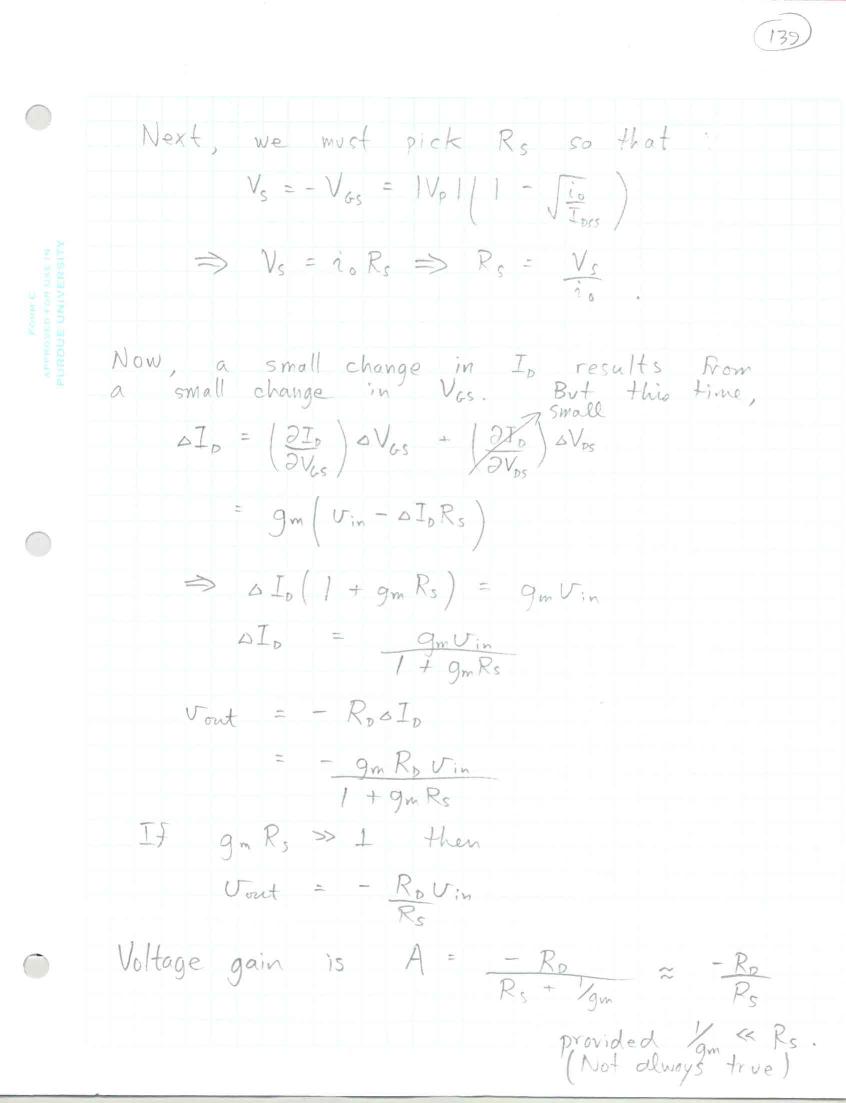 139
Next, we must pick R_S so that :
V_S = - V_GS = |V_P| ( 1 - √(i_o / I_DSS) )
⇒ V_S = i_o R_S ⇒ R_S = V_S / i_o .
FORM C
APPROVED FOR USE IN
PURDUE UNIVERSITY
Now, a small change in I_D results from
a small change in V_GS. But this time,
small
ΔI_D = (∂I_D / ∂V_GS) ΔV_GS + (∂I_D / ∂V_DS) ΔV_DS
= g_m ( v_in - ΔI_D R_S )
⇒ ΔI_D ( 1 + g_m R_S ) = g_m v_in
ΔI_D = g_m v_in / (1 + g_m R_S)
v_out = - R_D ΔI_D
= - g_m R_D v_in / (1 + g_m R_S)
If g_m R_S >> 1 then
v_out = - R_D / R_S v_in
Voltage gain is A = - R_D / (R_S + 1/g_m) ≈ - R_D / R_S
provided 1/g_m << R_S .
(Not always true)